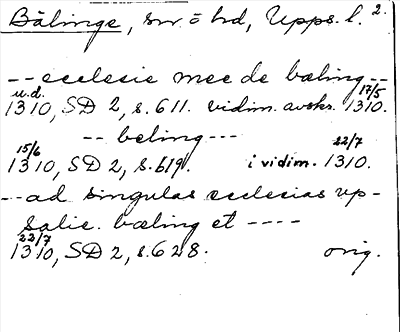 Bälinge, snr o hd, Upps. l. 2.
-- ecclesie mee de bæling --
u.d. 17/5
1310, SD 2, s. 611. vidim. avskr. 1310.
-- beling ---
15/6 22/7
1310, SD 2, s. 619. i vidim. 1310.
-- ad singulas ecclesias vp-
salie. bæling et ----
22/7
1310, SD 2, s. 628. orig.